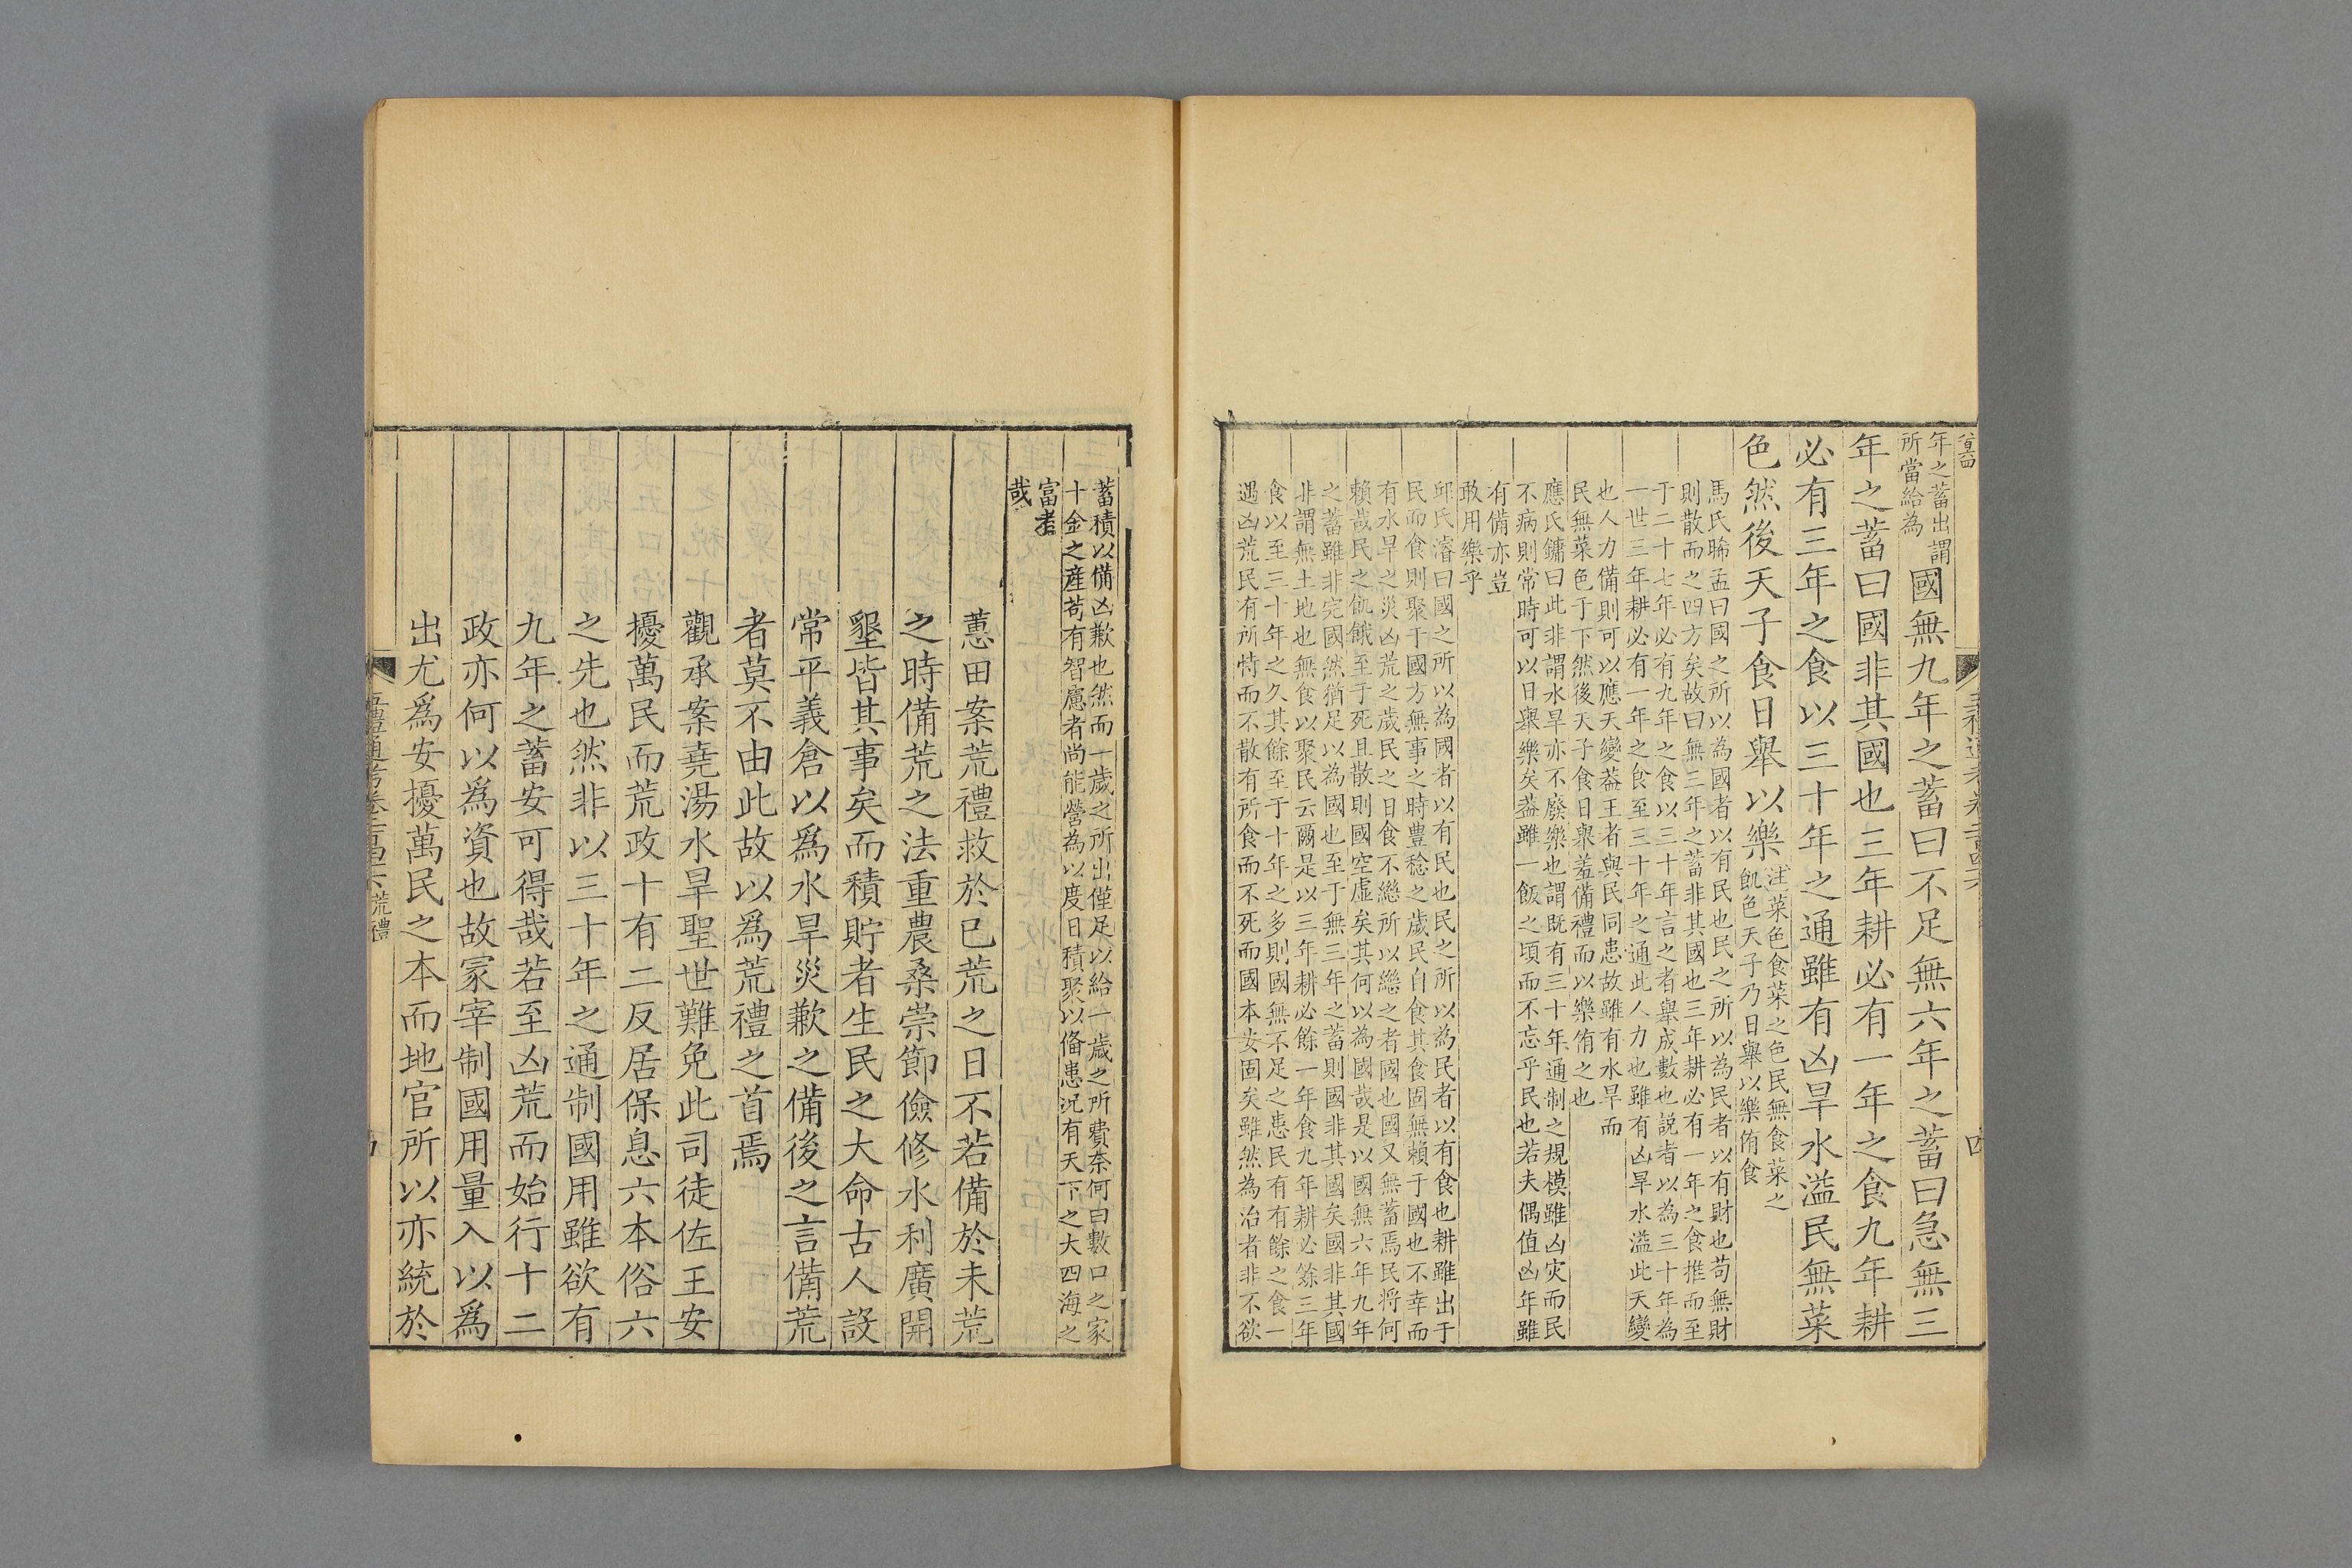 年之蓄出謂所當給為國無九年之蓄曰不足無六年之蓄曰急無三
年之蓄曰國非其國也三年耕必有一年之食九年耕
必有三年之食以三十年之通雖有凶旱水溢民無菜
色然後天子食日舉以樂注菜色食菜之色民無食菜之飢色天子乃日舉以樂侑食
馬氏晞孟曰國之所以為國者以有民也民之所以為民者以有財也苟無財
則散而之四方矣故曰無三年之蓄非其國也三年耕必有一年之食推而至
于二十七年必有九年之食以三十年言之者舉成數也説者以為三十年為
一世三年耕必有一年之食至三十年之通此人力也雖有凶旱水溢此天變
也人力備則可以應天變葢王者與民同患故雖有水旱而
民無菜色于下然後天子食日舉羞備禮而以樂侑之也
應氏鏞曰此非謂水旱亦不廢樂也謂既有三十年通制之規模雖凶灾而民
不病則常時可以日舉樂矣葢雖一飯之頃而不忘乎民也若夫偶值凶年雖
有備亦豈
敢用樂乎
邱氏濬曰國之所以為國者以有民也民之所以為民者以有食也耕雖出于
民而食則聚于國方無事之時豊稔之歲民自食其食固無賴于國也不幸而
有水旱之災凶荒之歲民之日食不繼所以繼之者國也國又無蓄焉民将何
賴哉民之飢餓至于死且散則國空虛矣其何以為國哉是以國無六年九年
之蓄雖非完國然猶足以為國也至于無三年之蓄則國非其國矣國非其國
非謂無土地也無食以聚民云爾是以三年耕必餘一年食九年耕必餘三年
食以至三十年之久其餘至于十年之多則國無不足之患民有有餘之食一
遇凶荒民有所恃而不散有所食而不死而國本安固矣雖然為治者非不欲
蓄積以備凶歉也然而一歲之所出僅足以給一歲之所費奈何曰數口之家
十金之產苟有智慮者尚能營為以度日積聚以備患況有天下之大四海之
富者
哉
蕙田案荒禮救於已荒之日不若備於未荒
之時備荒之法重農桑崇節儉修水利廣開
墾皆其事矣而積貯者生民之大命古人設
常平義倉以爲水旱災歉之備後之言備荒
者莫不由此故以爲荒禮之首焉
觀承案堯湯水旱聖世難免此司徒佐王安
擾萬民而荒政十有二反居保息六本俗六
之先也然非以三十年之通制國用雖欲有
九年之蓄安可得哉若至凶荒而始行十二
政亦何以爲資也故家宰制國用量入以爲
出尤爲安擾萬民之本而地官所以亦統於
荒禮